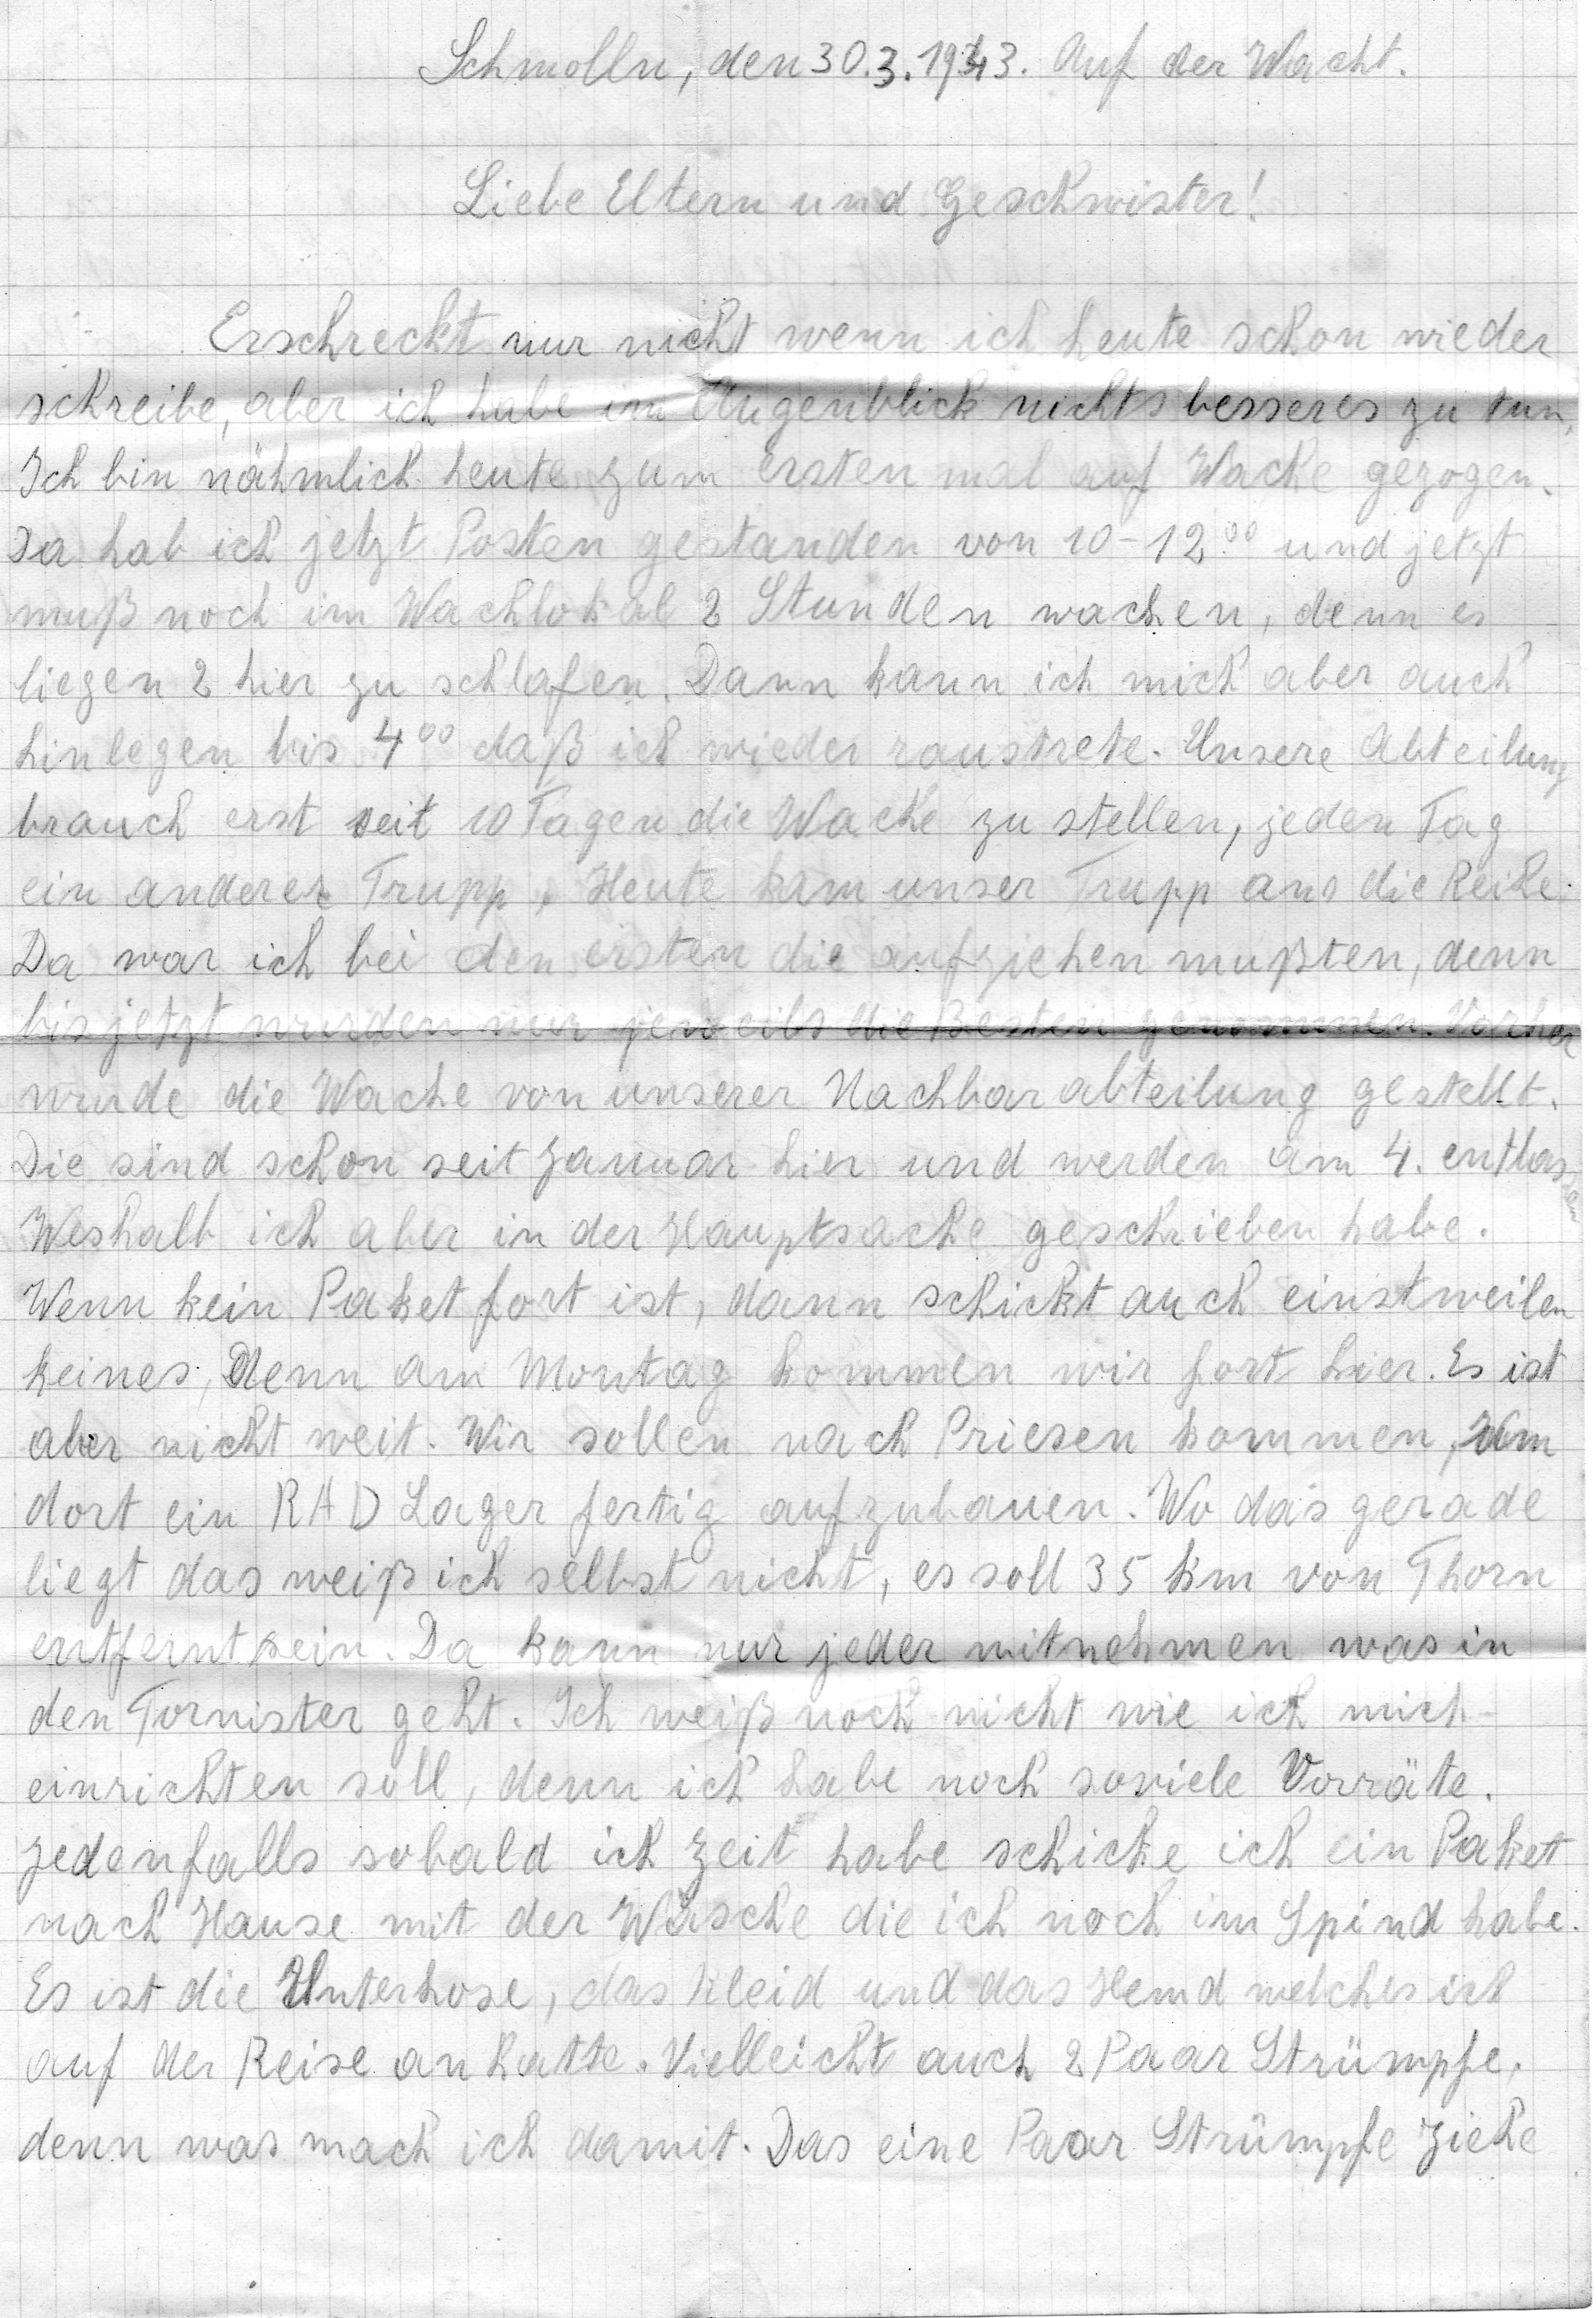 Schmolln, den 30.3.1943. Auf der Wacht.
Liebe Eltern und Geschwister!
Erschreckt nur nicht wenn ich heute schon wieder
schreibe, aber ich habe im Augenblick nichts besseres zu tun,
Ich bin nähmlich heute zum ersten mal auf Wache gezogen.
Da hab ich jetzt Posten gestanden von 10-12.00 und jetzt
muß noch im Wachlokal 2 Stunden wachen, denn es
liegen 2 hier zu schlafen. Dann kann ich mich aber auch
hinlegen bis 4 00 daß ich wieder raustrete. Unsere Abteilung
brauch erst seit 10 Tagen die Wache zu stellen, jeden Tag
ein anderer Trupp, Heute kam unser Trupp ans die Reihe.
Da war ich bei den ersten die aufziehen mußten, denn
bis jetzt wurden nur jeweils die Besten genommen. Vorher
wurde die Wache von unserer Nachbarabteilung gestellt.
Die sind schon seit Januar hier und werden am 4. entlassen
Weshalb ich aber in der Hauptsache geschrieben habe.
Wenn kein Paket fort ist, dann schickt auch einstweilen
keines, Denn am Montag kommen wir fort hier. Es ist
aber nicht weit. Wir sollen nach Priesen kommen, um
dort ein RAD Lager fertig aufzubauen. Wo das gerade
liegt das weiß ich selbst nicht, es soll 35 km von Thorn
entfernt sein. Da kann nur jeder mitnehmen was in
den Tornister geht. Ich weiß noch nicht wie ich mich
einrichten soll, denn ich habe noch soviele Vorräte.
Jedenfalls sobald ich Zeit habe schicke ich ein Paket
nach Hause mit der Wäsche die ich noch im Spind habe.
Es ist die Unterhose, das Kleid und das Hemd welches ich
auf der Reise an hatte. Vielleicht auch 2 Paar Strümpfe,
denn was mach ich damit. Das eine Paar Strümpfe ziehe